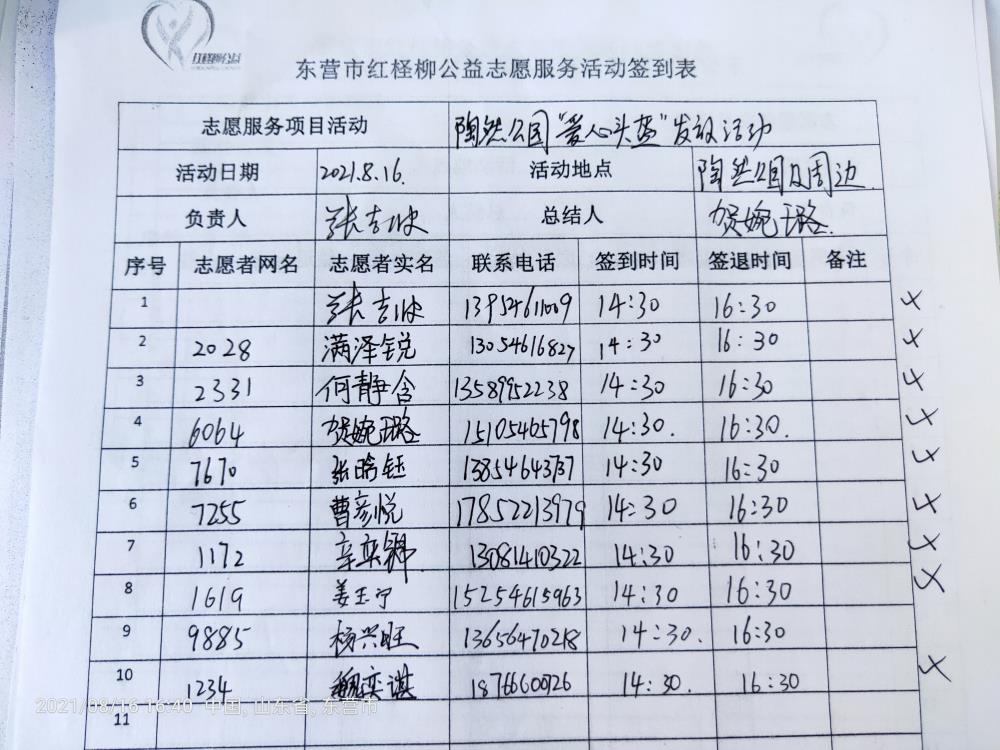 红柽柳公益
东营市红柽柳公益志愿服务活动签到表
志愿服务项目活动 陶然公园“爱心头盔”发放活动
活动日期 2021.8.16. 活动地点 陶然公园及周边
负责人 张吉波 总结人 贺婉璐
序号 志愿者网名 志愿者实名 联系电话 签到时间 签退时间 备注
1 张吉波 14:30 16:30
2 2028 满泽锐 13054616827 14:30 16:30
3 2331 何静含 13589952238 14:30 16:30
4 6064 贺婉璐 15105465798 14:30. 16:30.
5 7670 张晗钰 13854643737 14:30 16:30
6 7255 曹彦悦 17852213979 14:30 16:30
7 1172 辛奕 13081410322 14:30 16:30
8 1619 姜玉宁 15254615963 14:30 16:30
9 9885 杨兴旺 13656470218 14:30. 16:30
10 1234 奕谋 18766600926 14:30. 16:30
11
2021/08/16 16:40 中国, 山东省, 东营市